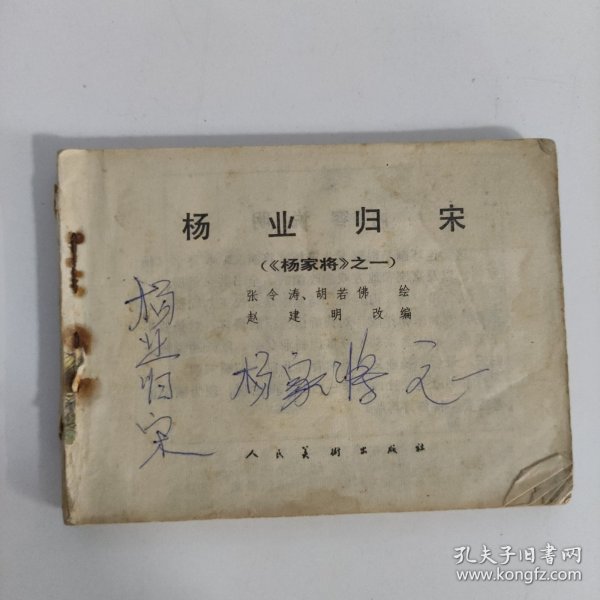 杨业归宋
(《杨家将》之一)
张令涛、胡若佛 绘
赵建明 改编
杨业归宋
杨家将之一
人民美术出版社
孔夫子旧书网
www.kongfz.com